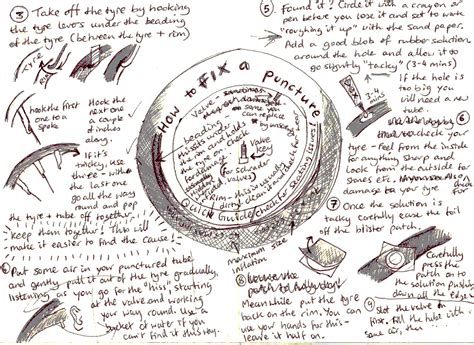 ③ Take off the tyre by hooking
the tyre levers under the beading
of the tyre (between the tyre + rim)
TYRE
Hook the first
one to a
spoke
Hook the
next one
a couple
of inches
along.
If it's
tricky, use
three - with
the last one
go all the way
round and pop
the tyre + tube off together.
keep them together. This will
make it easier to find the cause!
④ Put some air in your punctured tube
and gently pull it out of the tyre gradually,
listening as you go for the "hiss", starting
at the valve and working
your way round. Use a
bucket of water if you
can't find it this way.
HOW TO FIX A PUNCTURE
QUICK GUIDE
Valve
beading
this sits
valve
key
for schrader
valves)
Rim - this is usually
dirty, clean
check for
maximum
inflation
size
⑤ Found it? Circle it with a crayon or
pen before you lose it and set to work
"roughing it up" with the sand paper.
Add a good blob of rubber solution
around the hole and allow it to
go slightly "tacky" (3-4 mins)
3-4
mins
If the hole
is too big you
will need a new
tube.
⑥
check your
tyre - feel from the inside
for anything sharp and
look from the outside for
damage to your tyre
⑦ Once the solution is
tacky carefully ease the foil
off the blister patch.
Carefully
press the
patch on to
the solution pushing
down all the edges
⑧
Meanwhile put the tyre
back on the rim. You can
use your hands for this -
leave it half on.
⑨ Slot the valve in
first. Fill the tube with
some air, then